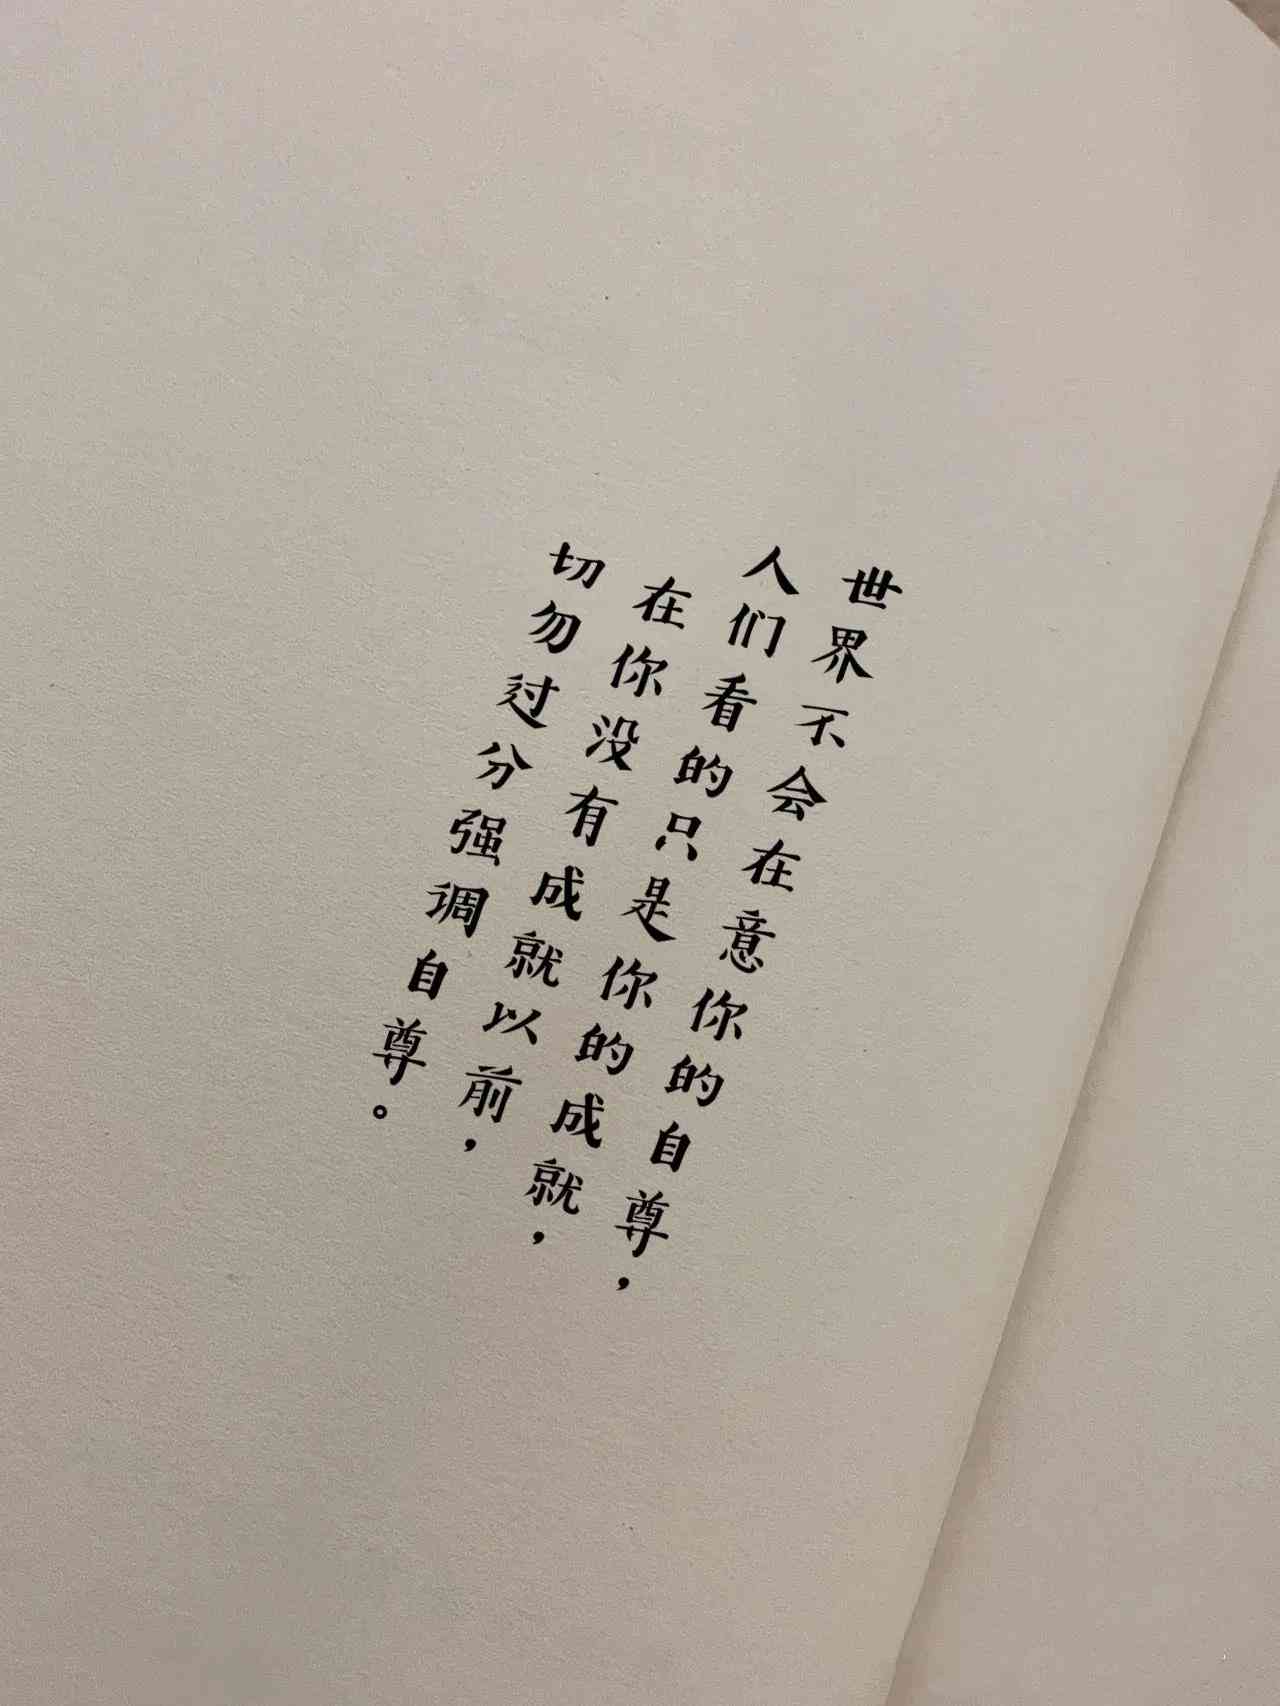 世界不会在意你的自尊，
人们看的只是你的成就，
在你没有成就以前，
切勿过分强调自尊。